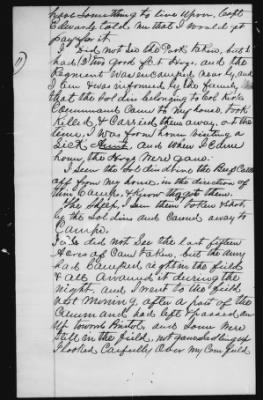 have Something to live upon, Capt
Edwards told me that I would get
pay for it.
11 I did not See the Pork taken, but I
had 13 two good fat Hogs, and the
Regiment was encamped near by, and
I am & was informed by the family
that the Soldiers belonging to Col
Command Came to my house, took
Killed & Carried them away, at the
time, I was from home visiting a
Sick Aunt and when I Came
home, the Hogs were gone.
I Seen the Soldiers drive the Beef Cattle
off from my home, in the direction of
their Camp, & Know they got them.
The Sheep, I Seen them taken & Shot
by the Soldiers and Carried away to
Camp.
I did not See the last fifteen
Acres of Corn taken, but the army
had Camped right in the field
& all around it during the
night, and I went to the field
next morning, after a part of the
Command had left & passed on
up toward Bristol and Some were
Still in the field, not gone Saddling up
I looked Carefully Over my Corn field